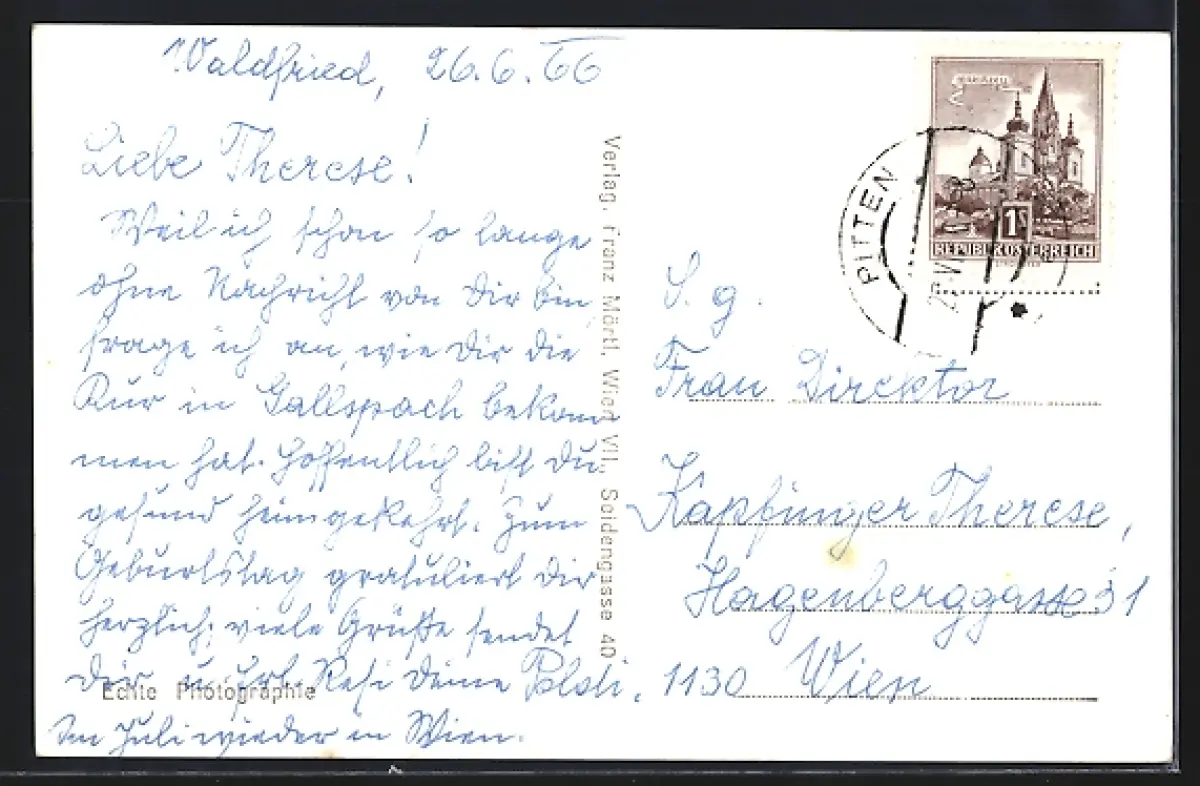 Waldfried, 26.6.66
Liebe Therese!
Weil ich schon so lange
ohne Nachricht von Dir bin
frage ich an, wie Dir die
Kur in Gallspach bekom
men hat. Hoffentlich bist Du
gesund heimgekehrt. Zum
Geburtstag gratuliert Dir
herzlich, viele Grüße sendet
Dir u. Resi Deine Poldi,
Im Juli wieder in Wien.
Echte Photographie
Verlag, Franz Mörtl, Wien VII., Seidengasse 40
REPUBLIK ÖSTERREICH
1S
PITTEN
S. g.
Frau Direktor
Kapfinger Therese,
Hagenberggasse 31
1130 Wien